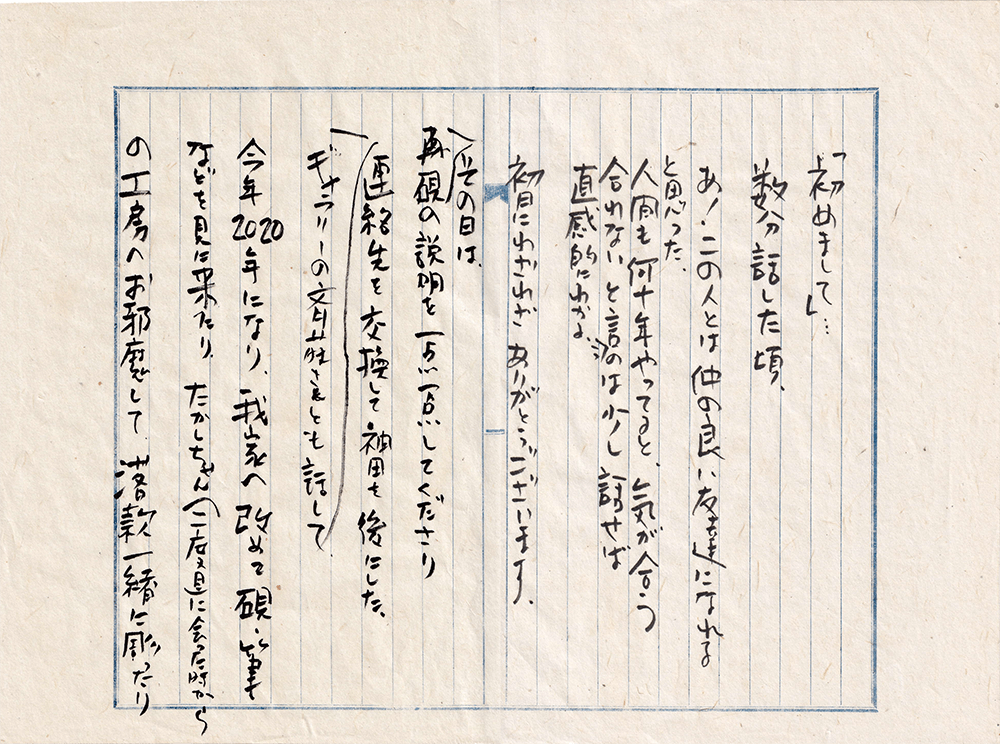 「初めまして」…
数分話した頃、
あ!この人とは仲の良い友達になれる
と思った、
人間も何十年やってると、気が合う
合わないと言うのは少し話せば
直感的にわかる、
初日にわざわざありがとうございます、
その日は、
再硯の説明を一点一点してくださり
連絡先を交換して神田を後にした、
ギャラリーの
とも話して
今年2020年になり、我家へ改めて硯・筆
などを見に来たり、たかしちゃん(二度目に会った時から
の工房へお邪魔して、落款一緒に彫ったり